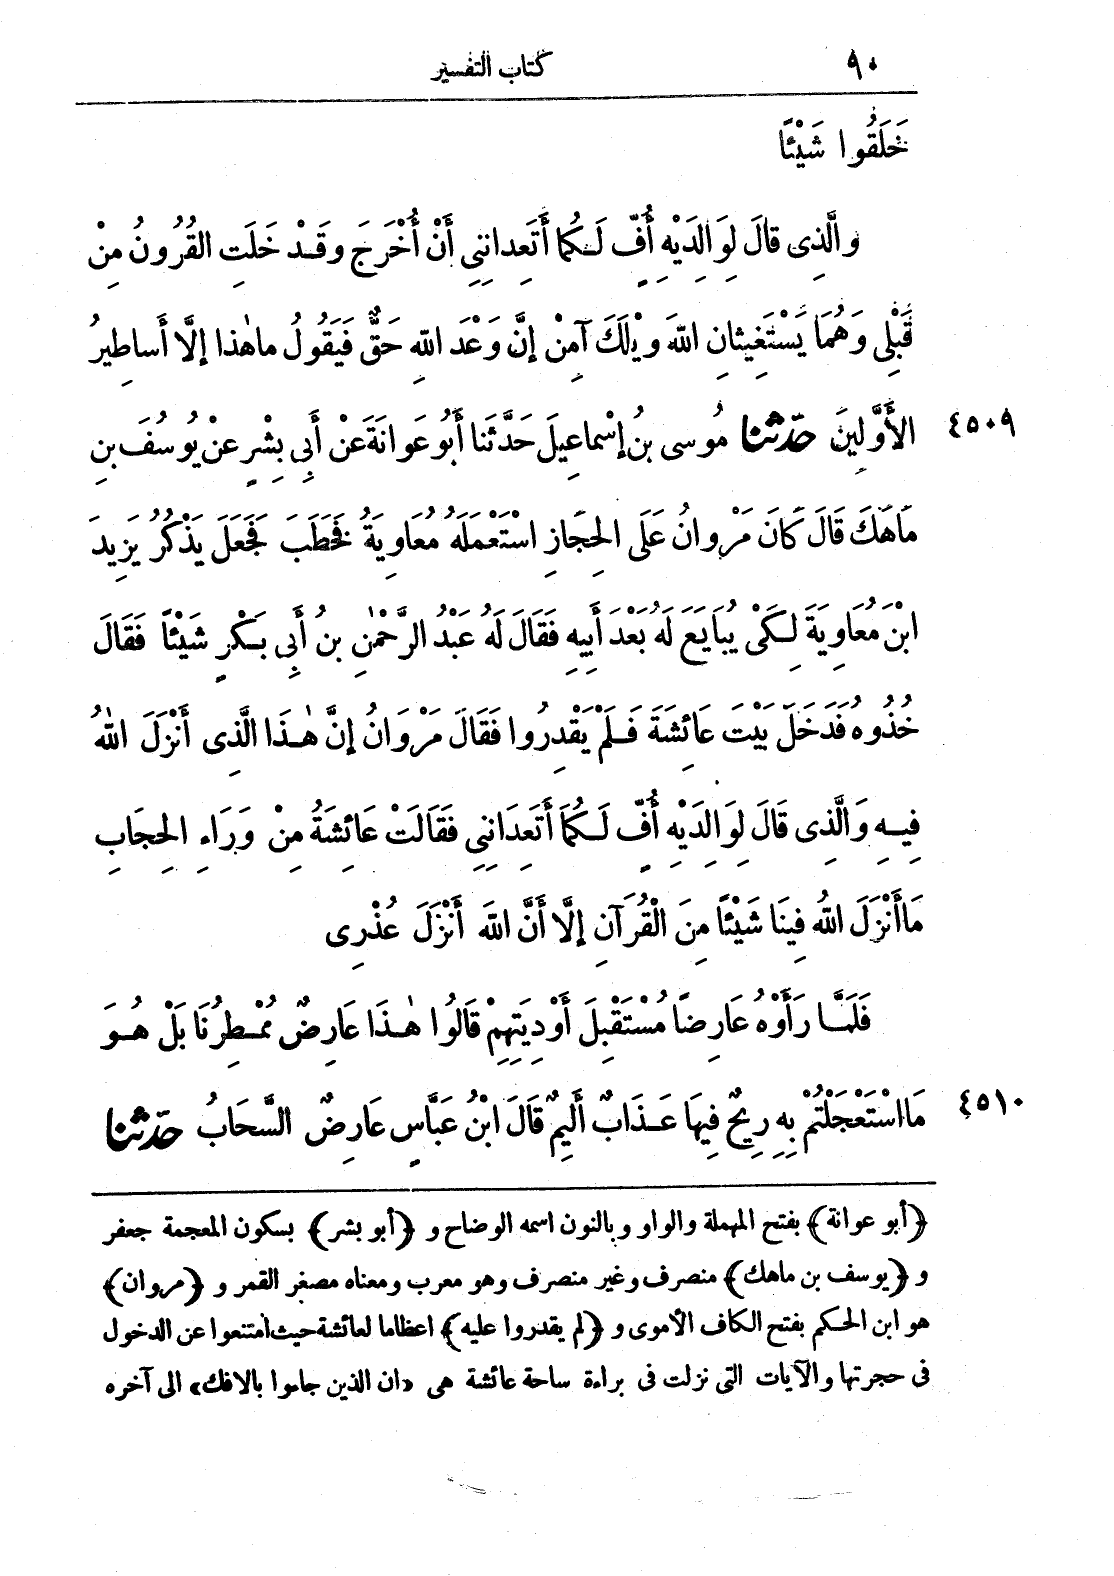 ٩٠ كتاب التفسير
خَلَقُوا شَيْئًا
والَّذِى قالَ لِوَالِدَيْهِ أُفٍّ لَكُمَا أَتَعِدانِنِى أَنْ أُخْرَجَ وقَدْ خَلَتِ القُرُونُ مِنْ
قَبْلِى وَهُمَا يَسْتَغِيثانِ اللهَ ويْلَكَ آمِنْ إنَّ وَعْدَ اللهِ حَقٌّ فَيَقُولُ ماهٰذا إلَّا أَساطِيرُ
٤٥٠٩ الأَوَّلِينَ حَدَّثنا مُوسى بنُ إسْماعِيلَ حَدَّثَنا أَبُو عَوانَةَ عَنْ أَبِى بِشْرٍ عنْ يُوسُفَ بنِ
مَاهَكَ قَالَ كَانَ مَرْوانُ عَلَى الحِجَازِ اسْتَعْمَلَهُ مُعَاوِيَةُ فَخَطَبَ فَجَعَلَ يَذْكُرُ يَزِيدَ
ابْنَ مُعَاوِيَةَ لِكَىْ يُبَايَعَ لَهُ بَعْدَ أَبِيهِ فَقَالَ لَهُ عَبْدُ الرَّحْمٰنِ بنُ أَبِى بَكْرٍ شَيْئًا فَقَالَ
خُذُوهُ فَدَخَلَ بَيْتَ عَائِشَةَ فَلَمْ يَقْدِرُوا فَقَالَ مَرْوَانُ إنَّ هٰذَا الَّذِى أَنْزَلَ اللهُ
فِيهِ وَالَّذِى قَالَ لِوَالِدَيْهِ أُفٍّ لَكُمَا أَتَعِدَانِنِى فَقَالَتْ عَائِشَةُ مِنْ وَرَاءِ الحِجَابِ
مَا أَنْزَلَ اللهُ فِينَا شَيْئًا مِنَ الْقُرْآنِ إلَّا أَنَّ اللهَ أَنْزَلَ عُذْرِى
فَلَمَّا رَأَوْهُ عَارِضًا مُسْتَقْبِلَ أَوْدِيَتِهِمْ قَالُوا هٰذَا عَارِضٌ مُمْطِرُنَا بَلْ هُوَ
٤٥١٠ مَا اسْتَعْجَلْتُمْ بِهِ رِيحٌ فِيهَا عَذَابٌ أَلِيمٌ قَالَ ابْنُ عَبَّاسٍ عَارِضٌ السَّحَابُ حَدَّثنا
﴿أبو عوانة﴾ بفتح المهملة والواو وبالنون اسمه الوضاح و ﴿أبو بشر﴾ بسكون المعجمة جعفر
و ﴿يوسف بن ماهك﴾ منصرف وغير منصرف وهو معرب ومعناه مصغر القمر و ﴿مروان﴾
هو ابن الحكم بفتح الكاف الأموى و ﴿لم يقدروا عليه﴾ اعظاما لعائشة حيث امتنعوا عن الدخول
فى حجرتها والآيات التى نزلت فى براءة ساحة عائشة هى «ان الذين جاءوا بالافك» الى آخره